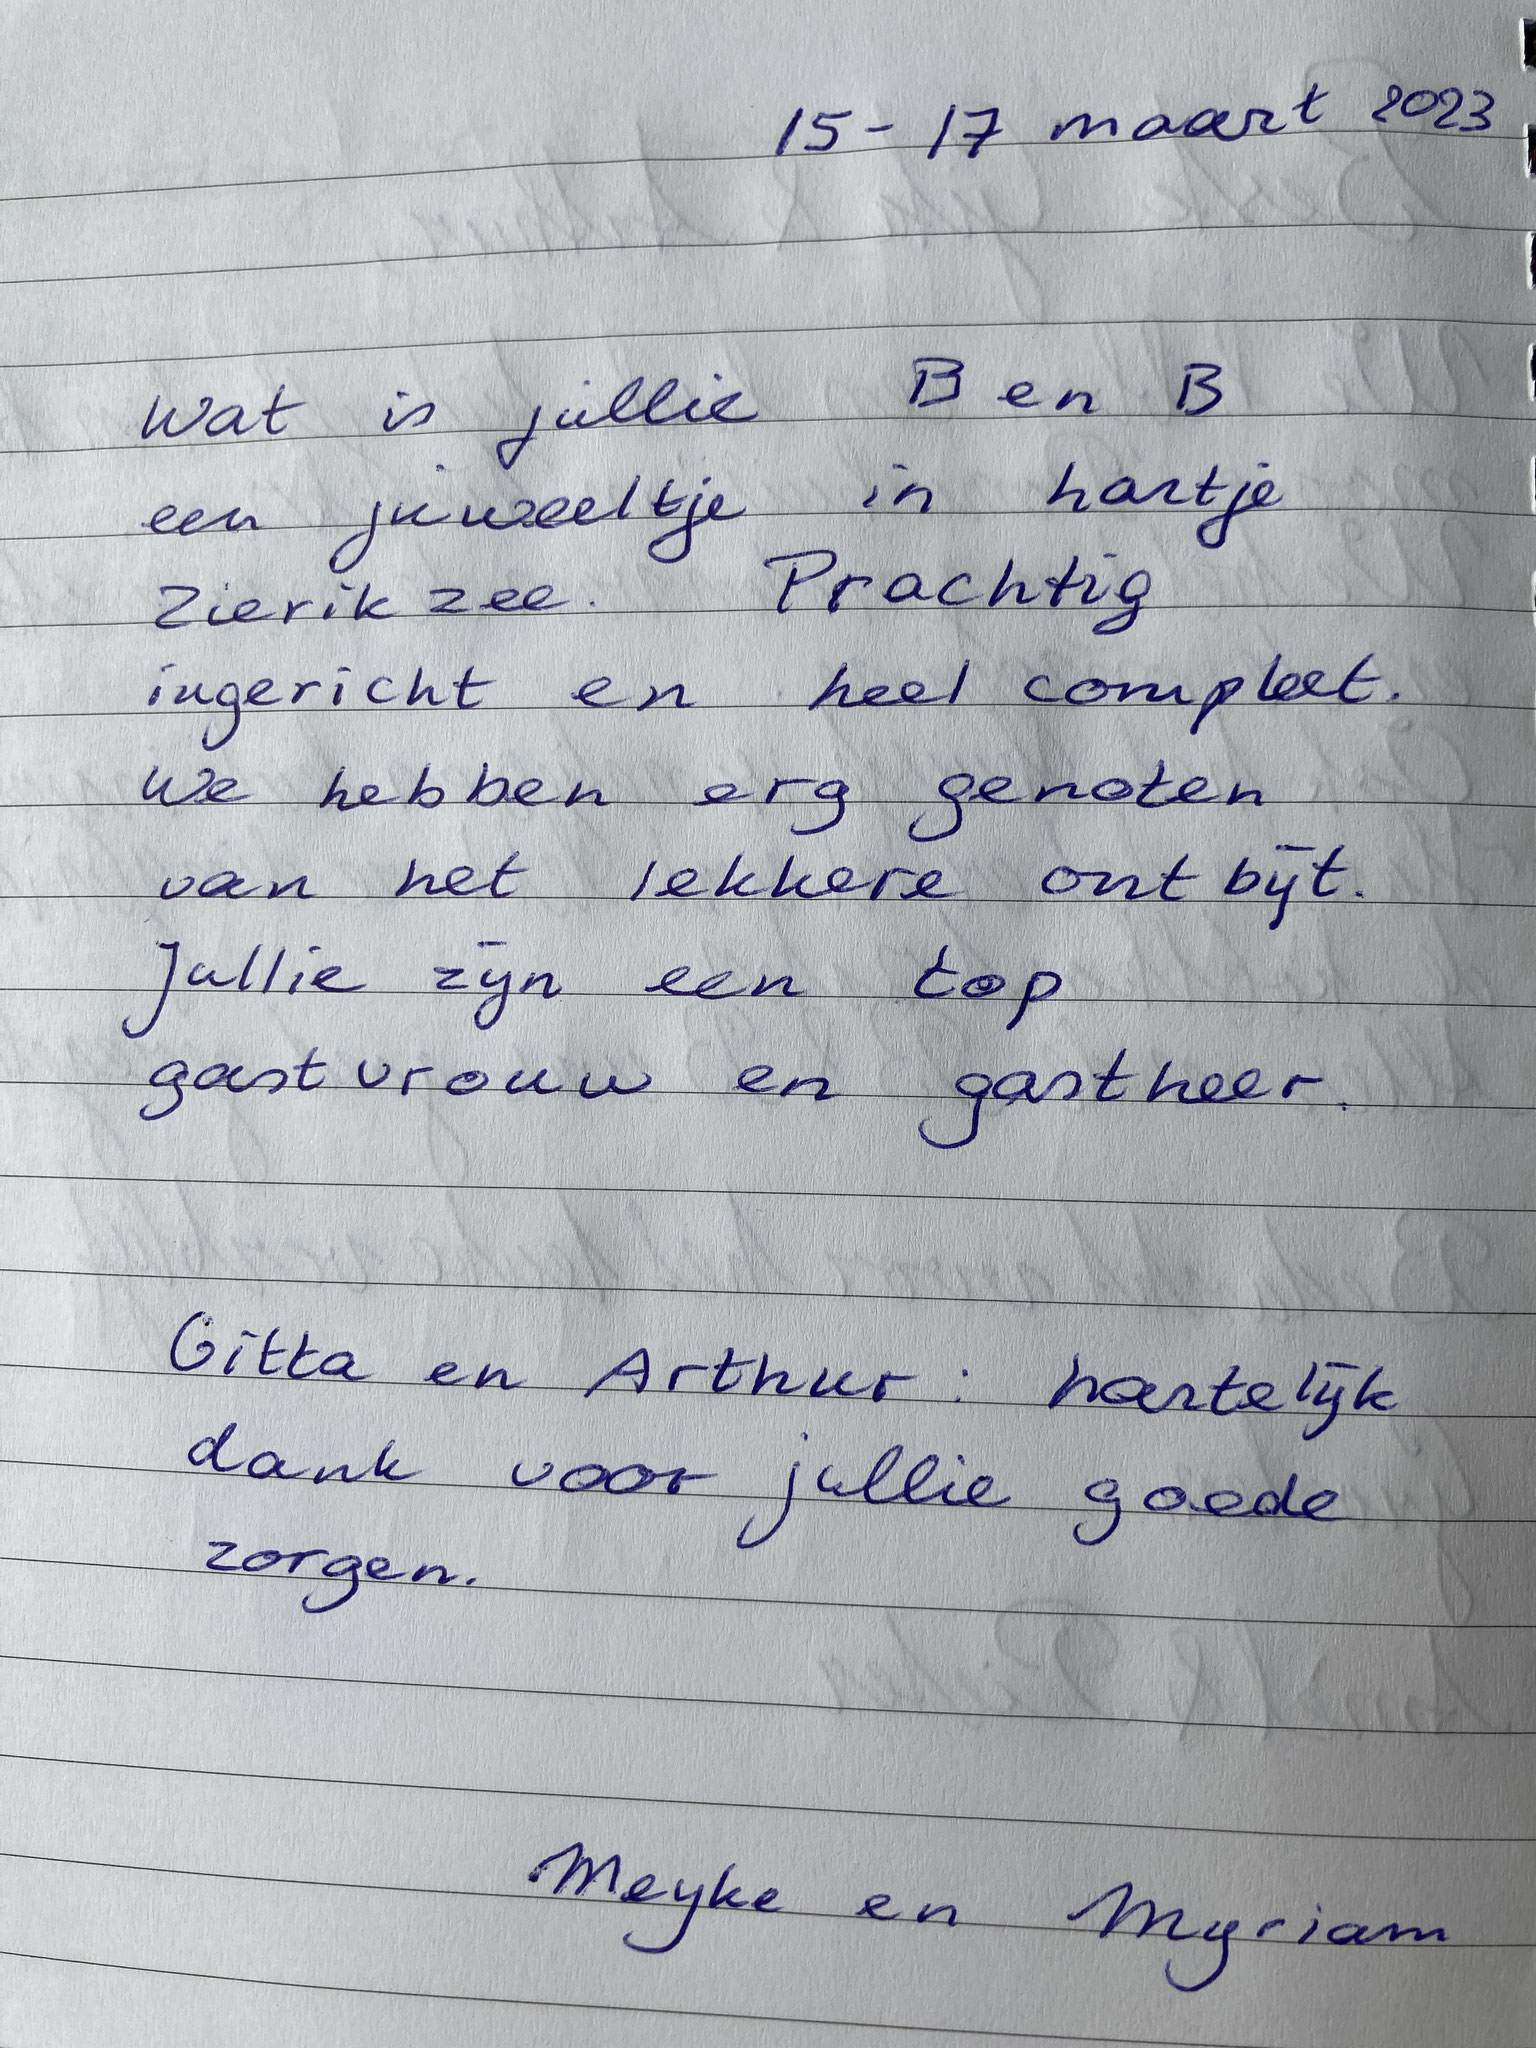 15 - 17 maart 2023
Wat is jullie B en B
een juweeltje in hartje
Zierikzee. Prachtig
ingericht en heel compleet.
We hebben erg genoten
van het lekkere ontbijt.
Jullie zijn een top
gastvrouw en gastheer.
Gitta en Arthur: hartelijk
dank voor jullie goede
zorgen.
Meyke en Myriam